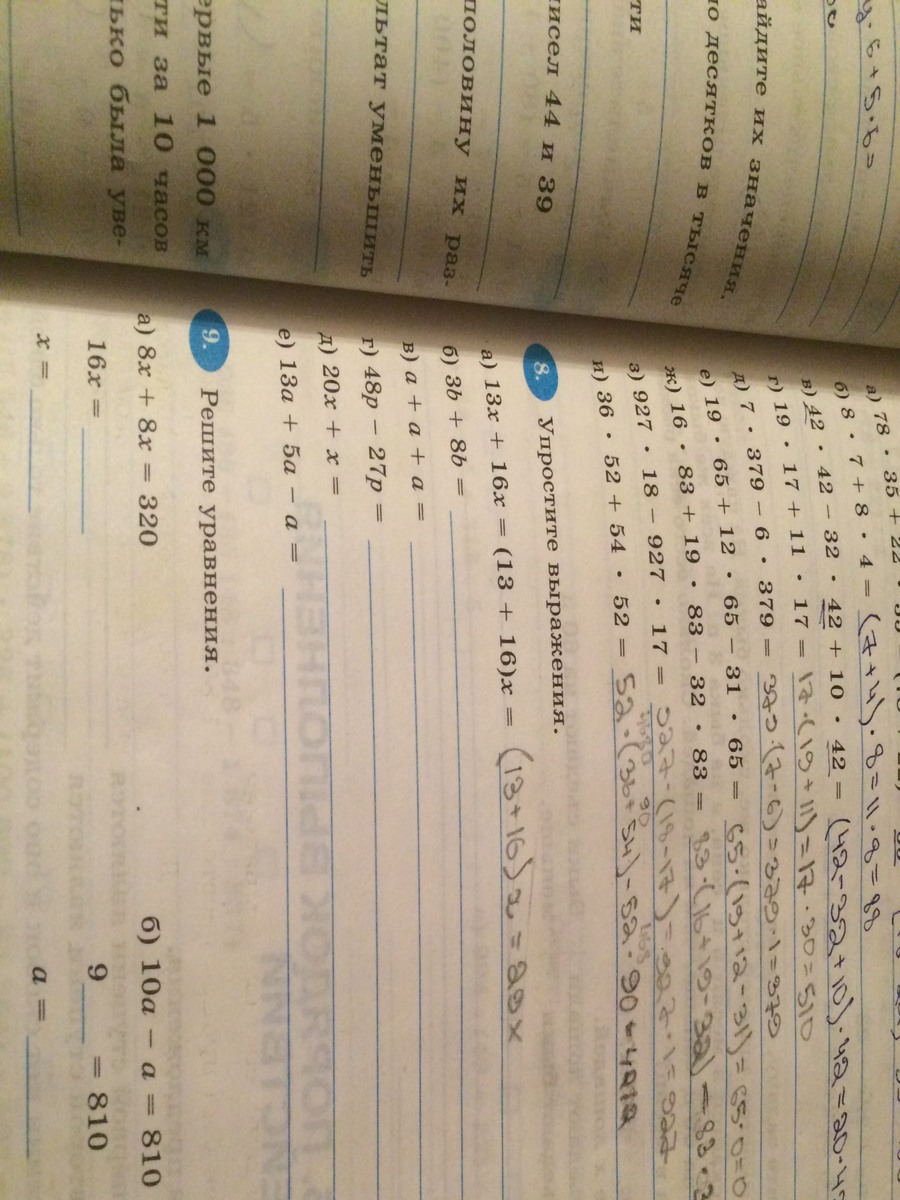 у · 6 + 5 · 6 =
айдите их значения.
о десятков в тысяче
ти
исел 44 и 39
половину их раз-
льтат уменьшить
ервые 1 000 км
ти за 10 часов
лько была уве-
а) 78 · 35 + 22 ·
б) 8 · 7 + 8 · 4 = (7+4) · 8 = 11 · 8 = 88
в) 42 · 42 − 32 · 42 + 10 · 42 = (42-32+10) · 42 = 20 ·
г) 19 · 17 + 11 · 17 = 17 · (19+11) = 17 · 30 = 510
д) 7 · 379 − 6 · 379 = 379 · (7-6) = 379 · 1 = 379
е) 19 · 65 + 12 · 65 − 31 · 65 = 65 · (19+12-31) = 65 · 0 = 0
ж) 16 · 83 + 19 · 83 − 32 · 83 = 83 · (16+19-32) = 83 · 3
з) 927 · 18 − 927 · 17 = 927 · (18-17) = 927 · 1 = 927
и) 36 · 52 + 54 · 52 = 52 · (36+54) = 52 · 90 =
8. Упростите выражения.
а) 13x + 16x = (13 + 16)x = (13+16)x = 29x
б) 3b + 8b =
в) a + a + a =
г) 48p − 27p =
д) 20x + x =
е) 13a + 5a − a =
9. Решите уравнения.
а) 8x + 8x = 320
16x =
x =
б) 10a − a = 810
9 = 810
a =